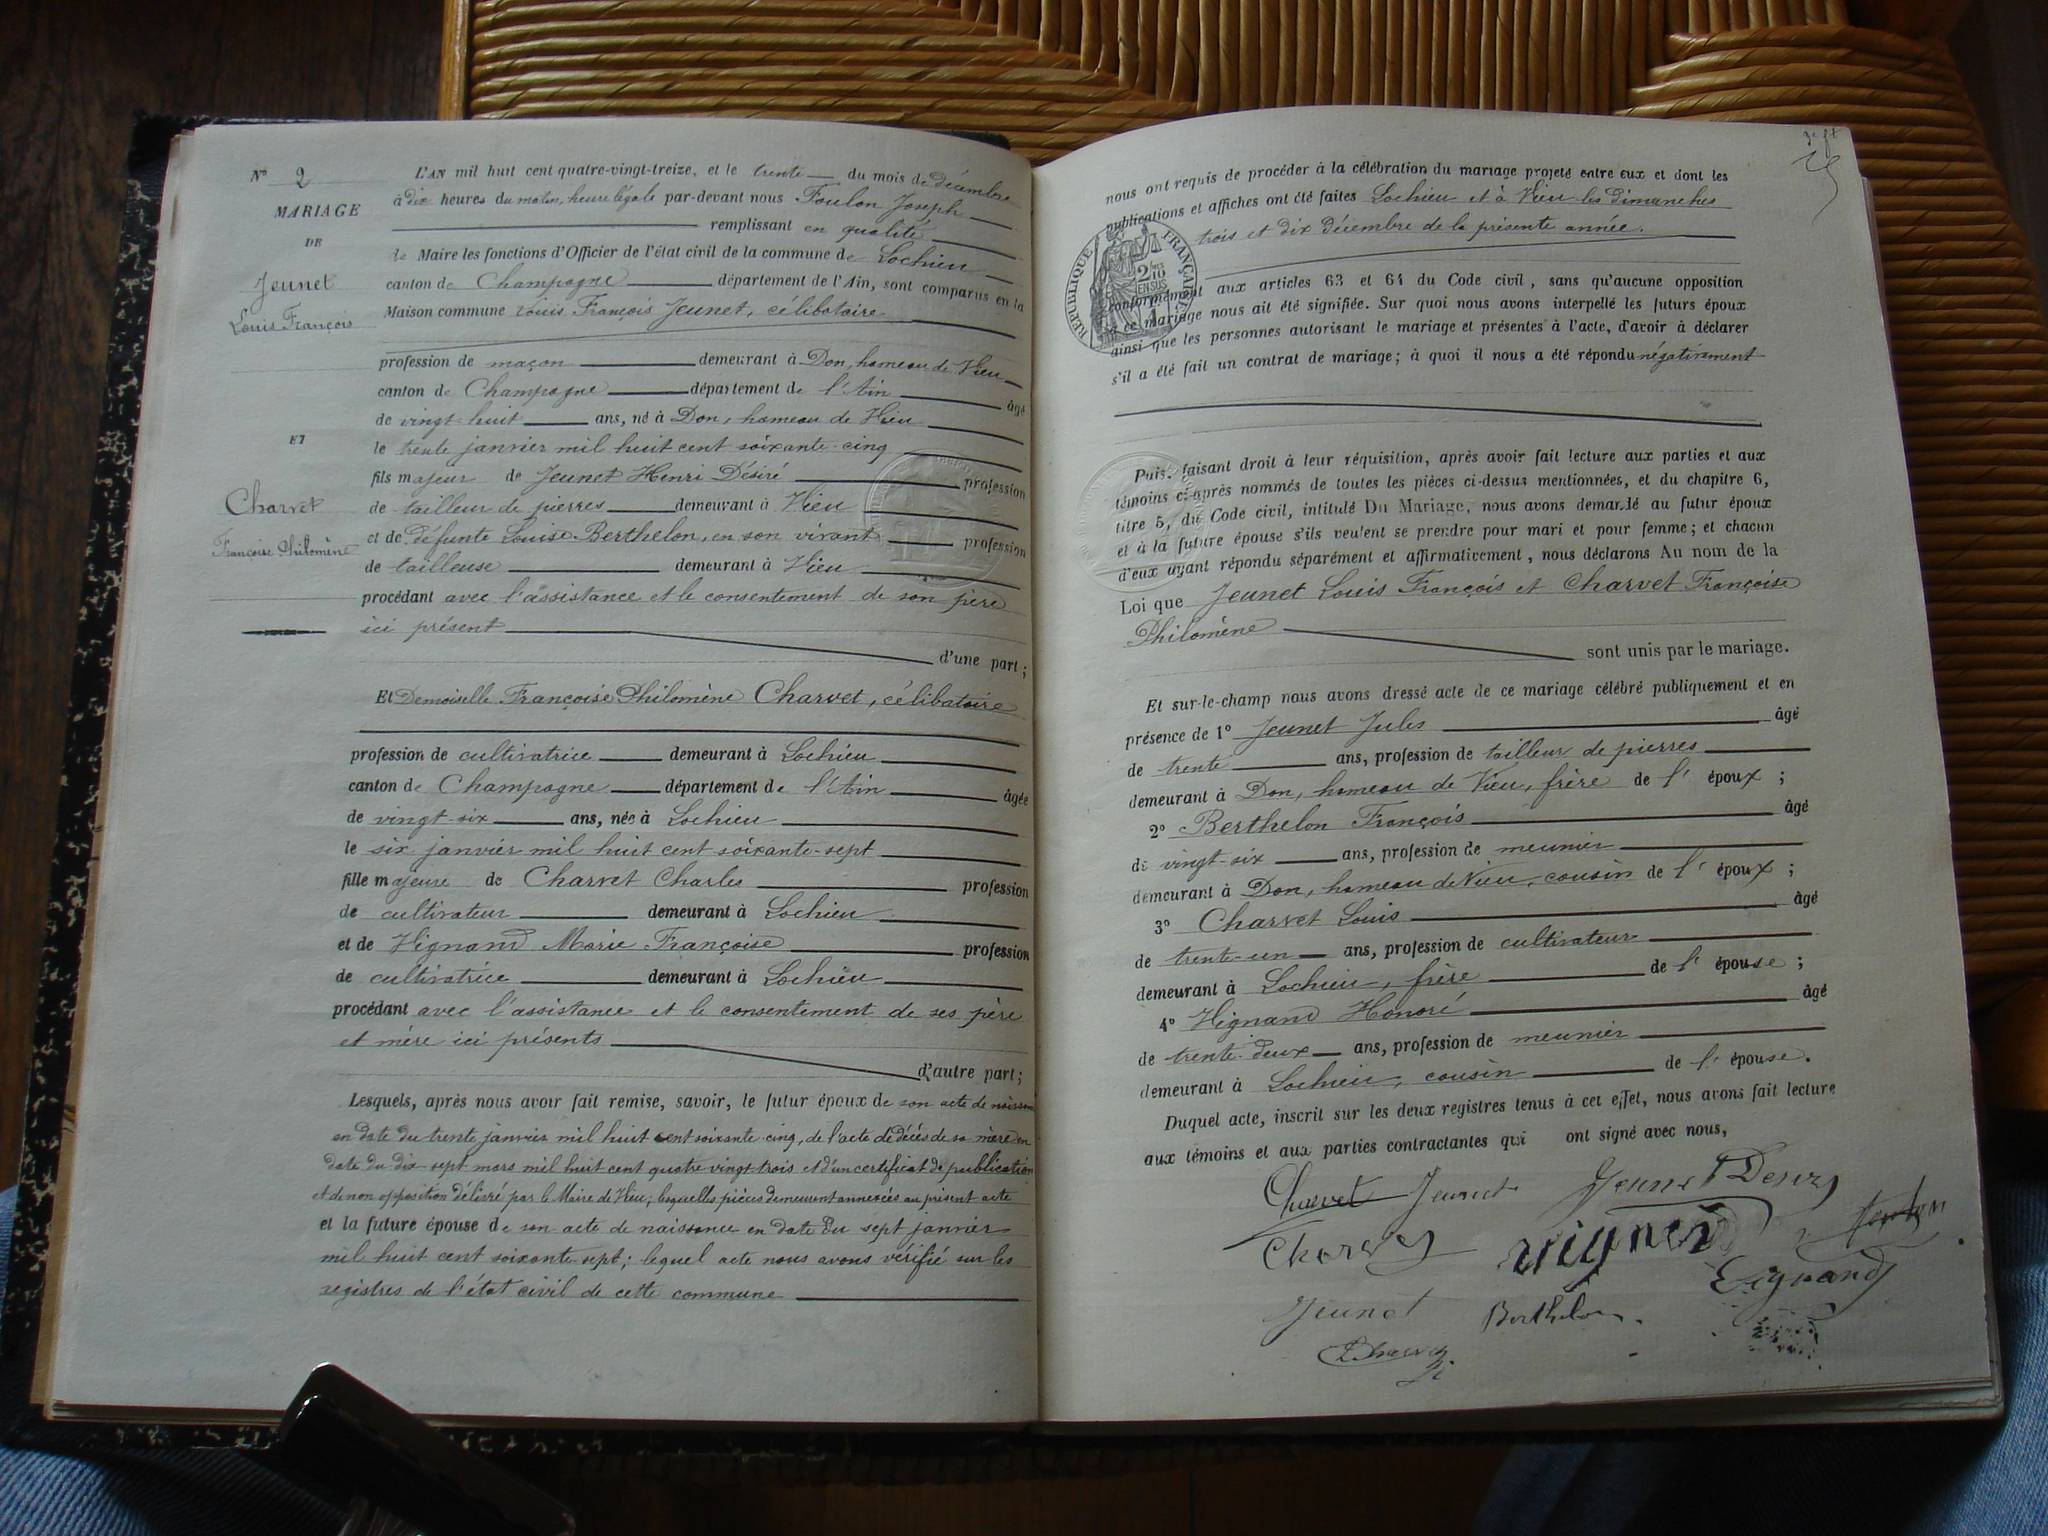 N° 2
MARIAGE
DE
Jeunet
Louis François
ET
Charvet
Françoise Philomène
L'AN mil huit cent quatre-vingt-treize, et le trente du mois de décembre
à dix heures du matin, heure légale par-devant nous Foulon Joseph
remplissant en qualité
de Maire les fonctions d'Officier de l'état civil de la commune de Lochieu
canton de Champagne département de l'Ain, sont comparus en la
Maison commune Louis François Jeunet, célibataire
profession de maçon demeurant à Don, hameau de Vieu
canton de Champagne département de l'Ain âgé
de vingt-huit ans, né à Don, hameau de Vieu
le trente janvier mil huit cent soixante-cinq
fils majeur de Jeunet Henri Désiré profession
de tailleur de pierres demeurant à Vieu
et de défunte Louise Berthelon, en son vivant profession
de tailleuse demeurant à Vieu
procédant avec l'assistance et le consentement de son père
ici présent
d'une part;
Et Demoiselle Françoise Philomène Charvet, célibataire
profession de cultivatrice demeurant à Lochieu
canton de Champagne département de l'Ain âgée
de vingt-six ans, née à Lochieu
le six janvier mil huit cent soixante-sept
fille majeure de Charvet Charles profession
de cultivateur demeurant à Lochieu
et de Vignand Marie Françoise profession
de cultivatrice demeurant à Lochieu
procédant avec l'assistance et le consentement de ses père
et mère ici présents
d'autre part;
Lesquels, après nous avoir fait remise, savoir, le futur époux de son acte de naissance
en date du trente janvier mil huit cent soixante-cinq, de l'acte de décès de sa mère en
date du dix-sept mars mil huit cent quatre vingt trois et d'un certificat de publication
et de non opposition délivré par le Maire de Vieu; lesquelles pièces demeurent annexées au présent acte
et la future épouse de son acte de naissance en date du sept janvier
mil huit cent soixante-sept; lequel acte nous avons vérifié sur les
registres de l'état civil de cette commune
nous ont requis de procéder à la célébration du mariage projeté entre eux et dont les
publications et affiches ont été faites Lochieu et à Vieu les dimanches
trois et dix décembre de la présente année.
RÉPUBLIQUE FRANÇAISE
2/10 EN SUS
conformément aux articles 63 et 64 du Code civil, sans qu'aucune opposition
à ce mariage nous ait été signifiée. Sur quoi nous avons interpellé les futurs époux
ainsi que les personnes autorisant le mariage et présentes à l'acte, d'avoir à déclarer
s'il a été fait un contrat de mariage; à quoi il nous a été répondu négativement
Puis, faisant droit à leur réquisition, après avoir fait lecture aux parties et aux
témoins ci-après nommés de toutes les pièces ci-dessus mentionnées, et du chapitre 6,
titre 5, du Code civil, intitulé Du Mariage, nous avons demandé au futur époux
et à la future épouse s'ils veulent se prendre pour mari et pour femme; et chacun
d'eux ayant répondu séparément et affirmativement, nous déclarons Au nom de la
Loi que Jeunet Louis François et Charvet Françoise
Philomène
sont unis par le mariage.
Et sur-le-champ nous avons dressé acte de ce mariage célébré publiquement et en
présence de 1° Jeunet Jules âgé
de trente ans, profession de tailleur de pierres
demeurant à Don, hameau de Vieu, frère de l'époux;
2° Berthelon François âgé
de vingt-six ans, profession de meunier
demeurant à Don, hameau de Vieu, cousin de l'époux;
3° Charvet Louis âgé
de trente-un ans, profession de cultivateur
demeurant à Lochieu, frère de l'épouse;
4° Vignand Honoré âgé
de trente-deux ans, profession de meunier
demeurant à Lochieu, cousin de l'épouse.
Duquel acte, inscrit sur les deux registres tenus à cet effet, nous avons fait lecture
aux témoins et aux parties contractantes qui ont signé avec nous,
Charvet Jeunet Jeunet
Vignand
Jeunet Berthelon